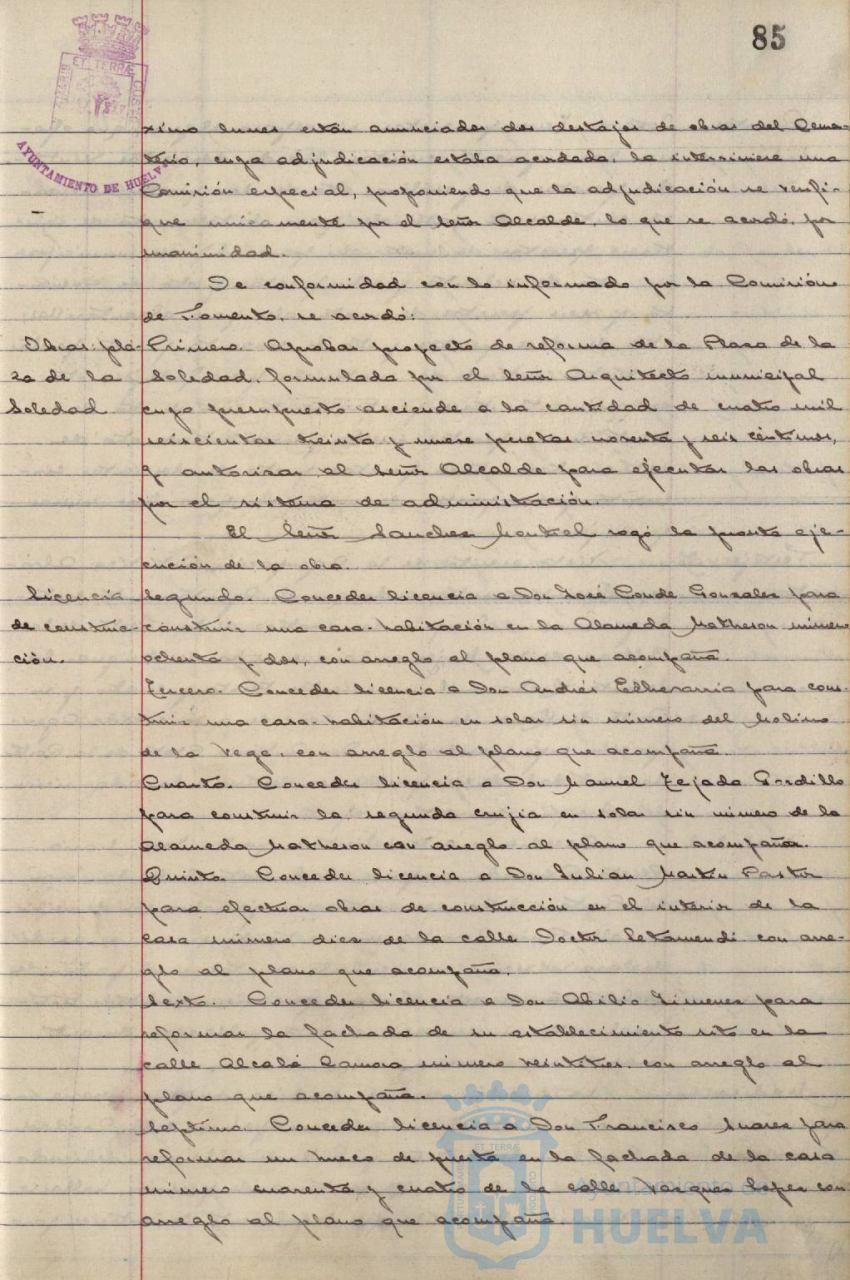 85
ET TERRÆ
AYUNTAMIENTO DE HUELVA
ximo lunes están anunciados dos destajos de obras del Cemen-
terio, cuya adjudicación estaba acordada, la interviniese una
Comisión especial, proponiendo que la adjudicación se verifi-
que unicamente por el Señor Alcalde, lo que se acordó, por
unanimidad.
De conformidad con lo informado por la Comisión
de Fomento, se acordó:
Obras pla-
za de la
Soledad
Primero. Aprobar proyecto de reforma de la Plaza de la
Soledad, formulada por el Señor Arquitecto municipal
cuyo presupuesto asciende a la cantidad de cuatro mil
seiscientas treinta y nueve pesetas noventa y seis céntimos,
y autorizar al Señor Alcalde para ejecutar las obras
por el sistema de administración.
El Señor Sanchez Montiel rogó la pronta eje-
cución de la obra.
Licencia
de construc-
ción.
Segundo. Conceder licencia a Don José Conde Gonzalez para
construir una casa-habitación en la Alameda Matheson número
ochenta y dos, con arreglo al plano que acompaña.
Tercero. Conceder licencia a Don Andrés Etchevarria para cons-
truir una casa-habitación en solar sin número del Molino
de la Vega, con arreglo al plano que acompaña.
Cuarto. Conceder licencia a Don Manuel Tejada Gordillo
para construir la segunda crujia en solar sin número de la
Alameda Matheson con arreglo al plano que acompaña.
Quinto. Conceder licencia a Don Julian Martin Pastor
para efectuar obras de construcción en el interior de la
casa número diez de la calle Doctor Letamendi con arre-
glo al plano que acompaña.
Sexto. Conceder licencia a Don Abilio Jimenez para
reformar la fachada de su establecimiento sito en la
calle Alcalá Zamora número veintitres, con arreglo al
plano que acompaña.
Septimo. Conceder licencia a Don Francisco Suarez para
reformar un hueco de puerta en la fachada de la casa
número cuarenta y cuatro de la calle Vazquez Lopez con
arreglo al plano que acompaña.
ET TERRÆ
Ayuntamiento de
HUELVA